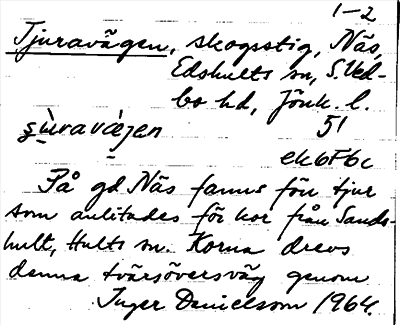 1-2
Tjuravägen, skogsstig, Näs,
Edshults sn, S. Ved-
bo hd, Jönk. l.
51
ek6F6c
På gd Näs fanns förr tjur
som anlitades för kor från Sands-
hult, Hults sn. Korna drevs
denna tvärsöversväg genom
Inger Danielsson 1964.